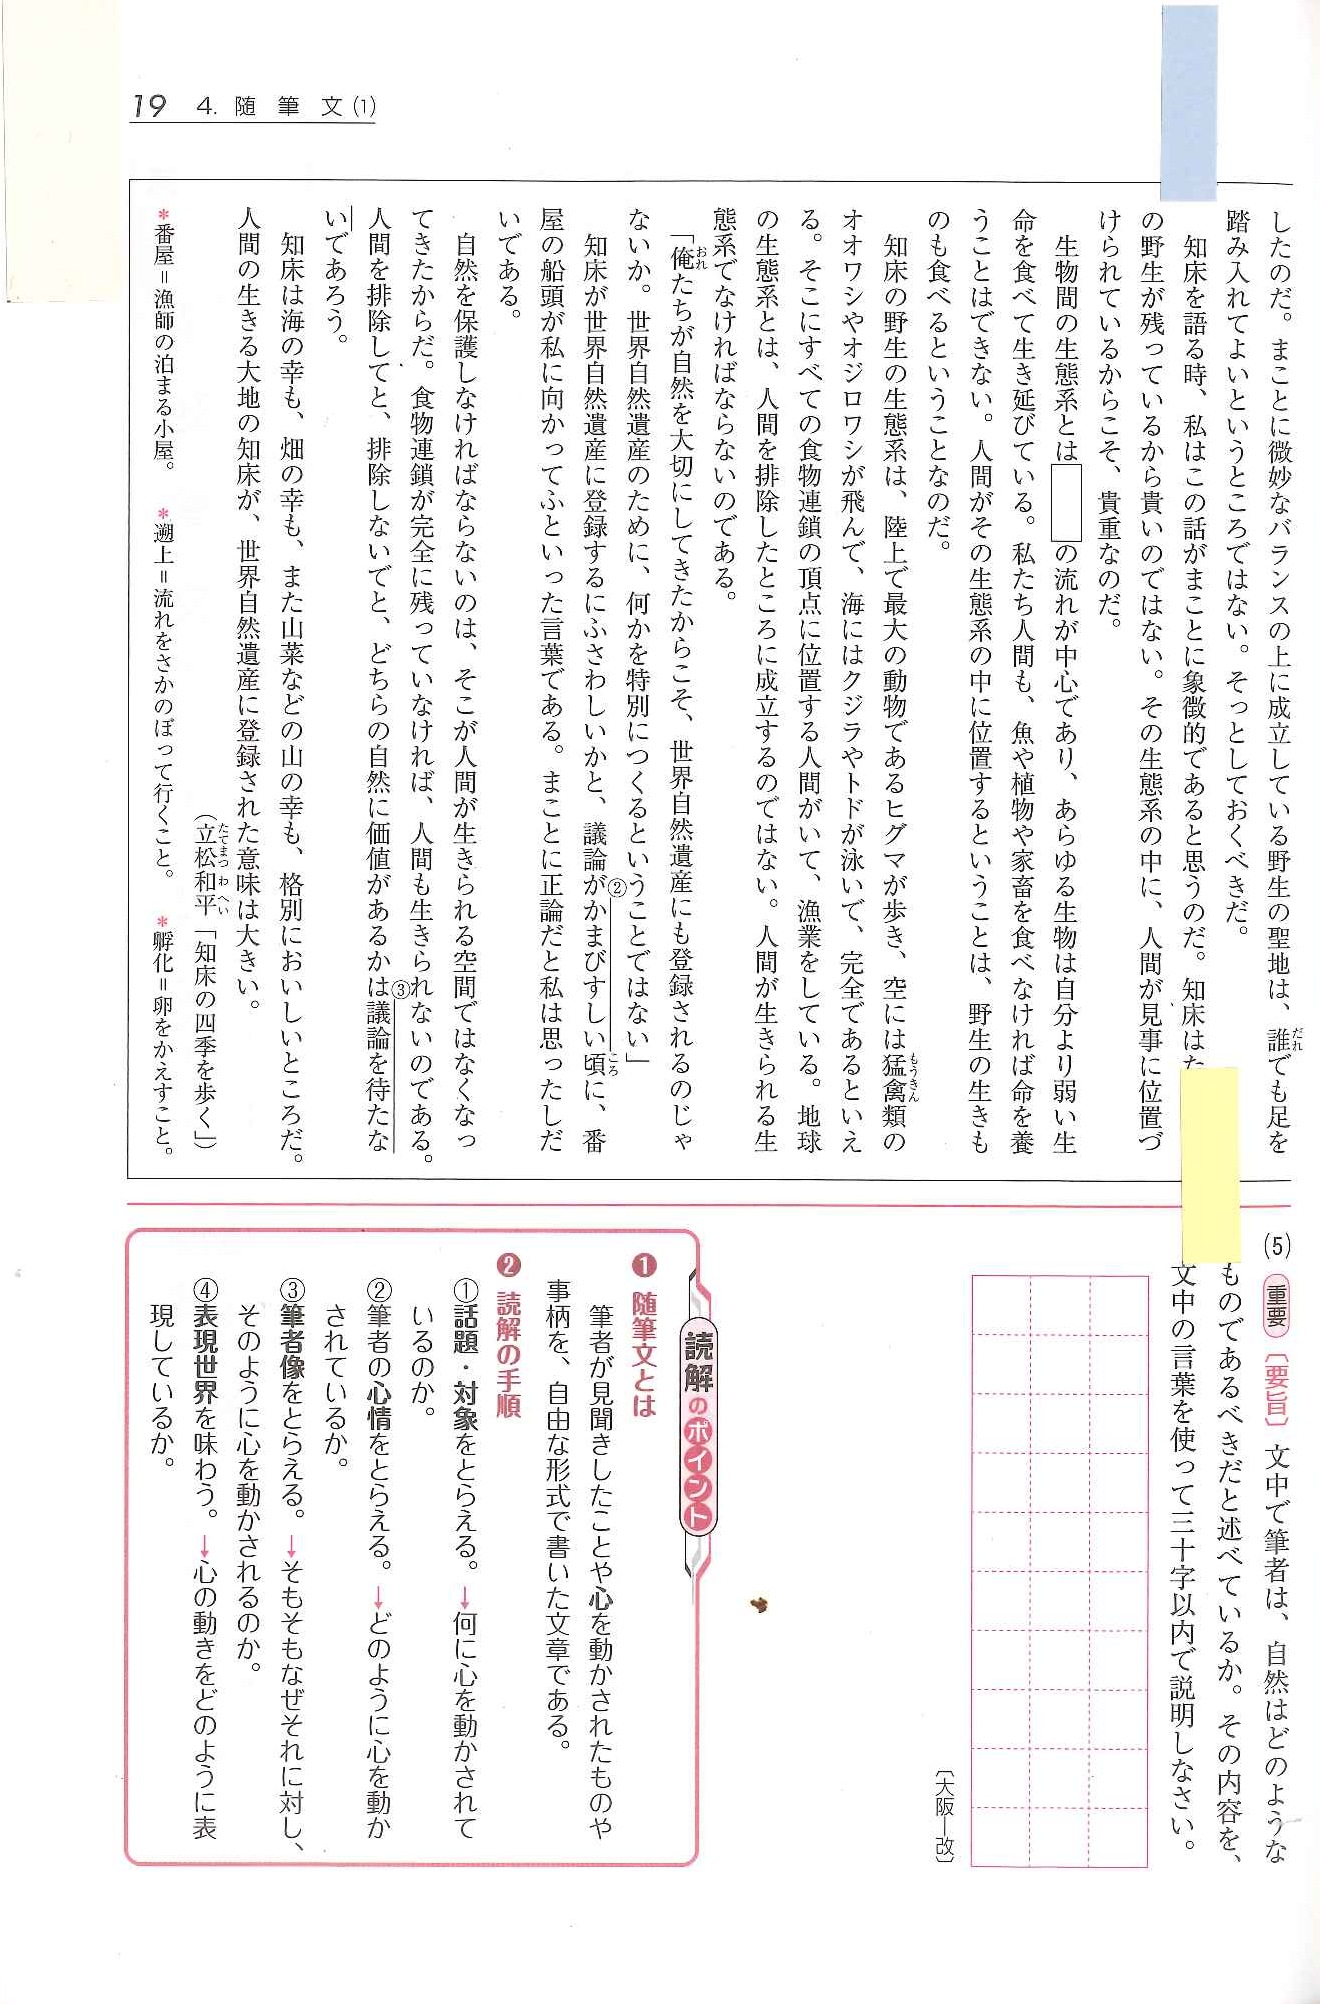 19 4. 随筆文(1)
したのだ。まことに微妙なバランスの上に成立している野生の聖地は、誰でも足を
だれ
踏み入れてよいというところではない。そっとしておくべきだ。
知床を語る時、私はこの話がまことに象徴的であると思うのだ。知床はた
の野生が残っているから貴いのではない。その生態系の中に、人間が見事に位置づ
けられているからこそ、貴重なのだ。
生物間の生態系とは
の流れが中心であり、あらゆる生物は自分より弱い生
命を食べて生き延びている。私たち人間も、魚や植物や家畜を食べなければ命を養
うことはできない。人間がその生態系の中に位置するということは、野生の生きも
のも食べるということなのだ。
知床の野生の生態系は、陸上で最大の動物であるヒグマが歩き、空には猛禽類の
もうきん
オオワシやオジロワシが飛んで、海にはクジラやトドが泳いで、完全であるといえ
る。そこにすべての食物連鎖の頂点に位置する人間がいて、漁業をしている。地球
の生態系とは、人間を排除したところに成立するのではない。人間が生きられる生
態系でなければならないのである。
「俺たちが自然を大切にしてきたからこそ、世界自然遺産にも登録されるのじゃ
おれ
ないか。世界自然遺産のために、何かを特別につくるということではない」
知床が世界自然遺産に登録するにふさわしいかと、議論が②かまびすしい頃に、番
ころ
屋の船頭が私に向かってふといった言葉である。まことに正論だと私は思ったしだ
いである。
自然を保護しなければならないのは、そこが人間が生きられる空間ではなくなっ
てきたからだ。食物連鎖が完全に残っていなければ、人間も生きられないのである。
人間を排除してと、排除しないでと、どちらの自然に価値があるかは③議論を待たな
いであろう。
知床は海の幸も、畑の幸も、また山菜などの山の幸も、格別においしいところだ。
人間の生きる大地の知床が、世界自然遺産に登録された意味は大きい。
(立松和平「知床の四季を歩く」)
たてまつ わ へい
*番屋=漁師の泊まる小屋。 *遡上=流れをさかのぼって行くこと。 *孵化=卵をかえすこと。
(5) 重要 〔要旨〕 文中で筆者は、自然はどのような
ものであるべきだと述べているか。その内容を、
文中の言葉を使って三十字以内で説明しなさい。
〔大阪―改〕
読解のポイント
❶ 随筆文とは
筆者が見聞きしたことや心を動かされたものや
事柄を、自由な形式で書いた文章である。
❷ 読解の手順
①話題・対象をとらえる。→何に心を動かされて
いるのか。
②筆者の心情をとらえる。→どのように心を動か
されているか。
③筆者像をとらえる。→そもそもなぜそれに対し、
そのように心を動かされるのか。
④表現世界を味わう。→心の動きをどのように表
現しているか。